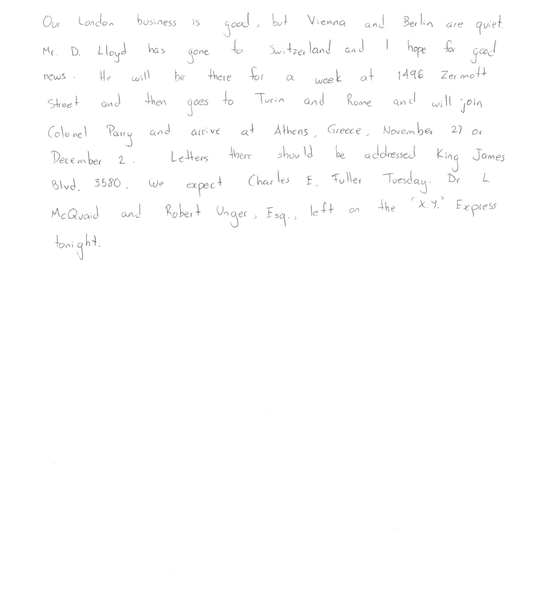 Our London business is good, but Vienna and Berlin are quiet.
Mr. D. Lloyd has gone to Switzerland and I hope for good
news. He will be there for a week at 1496 Zermott
Street and then goes to Turin and Rome and will join
Colonel Parry and arrive at Athens, Greece, November 27 or
December 2. Letters there should be addressed King James
Blvd. 3580. We expect Charles E. Fuller Tuesday. Dr L
McQuaid and Robert Unger, Esq., left on the 'X.Y.' Express
tonight.